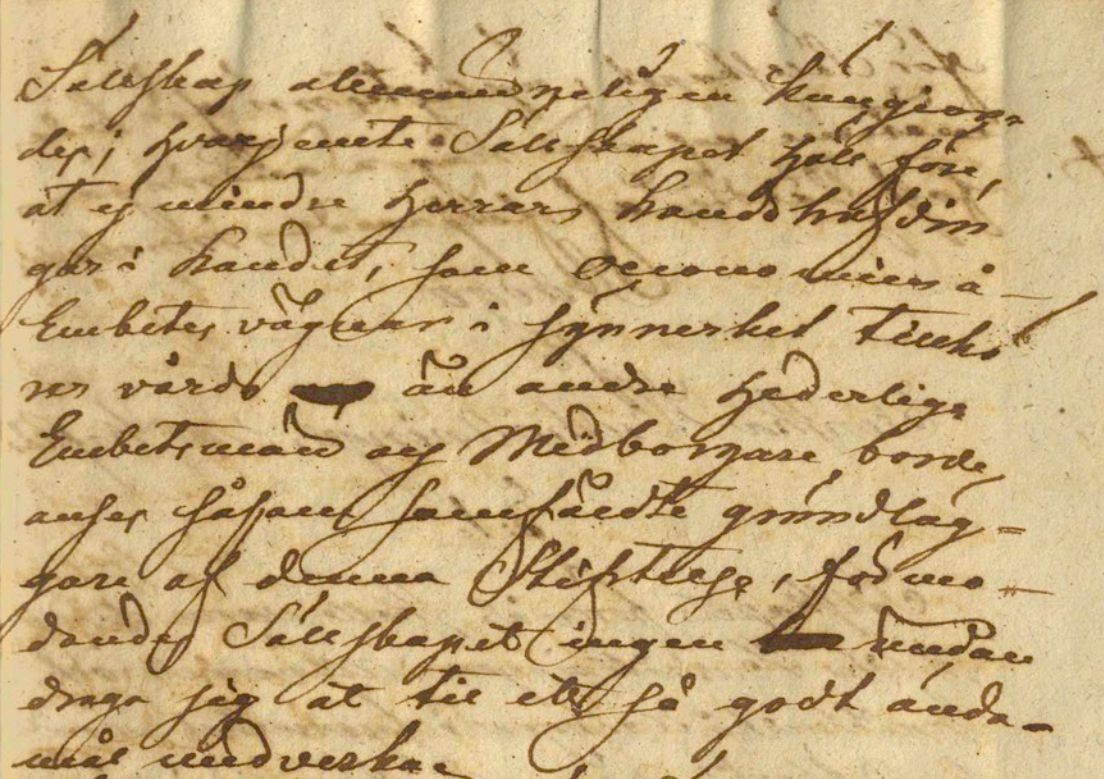 Sälskap allmänneligen kungiör-
des; hvarjemte Sälskapet hölt före,
at ej mindre Herrar Landshöfdin
gar i Landet, som Oeconomien å
Embetes vägnar i synnerhet tilhö
rer vårda än andre Hederlige
Embetsmän och Medborgare, borde
anses såsom samfäldte grundläg-
gare af denna Stiftelse, förmo-
dandes Sälskapet ingen undan
draga sig at til ett så godt ända-
mål medverka